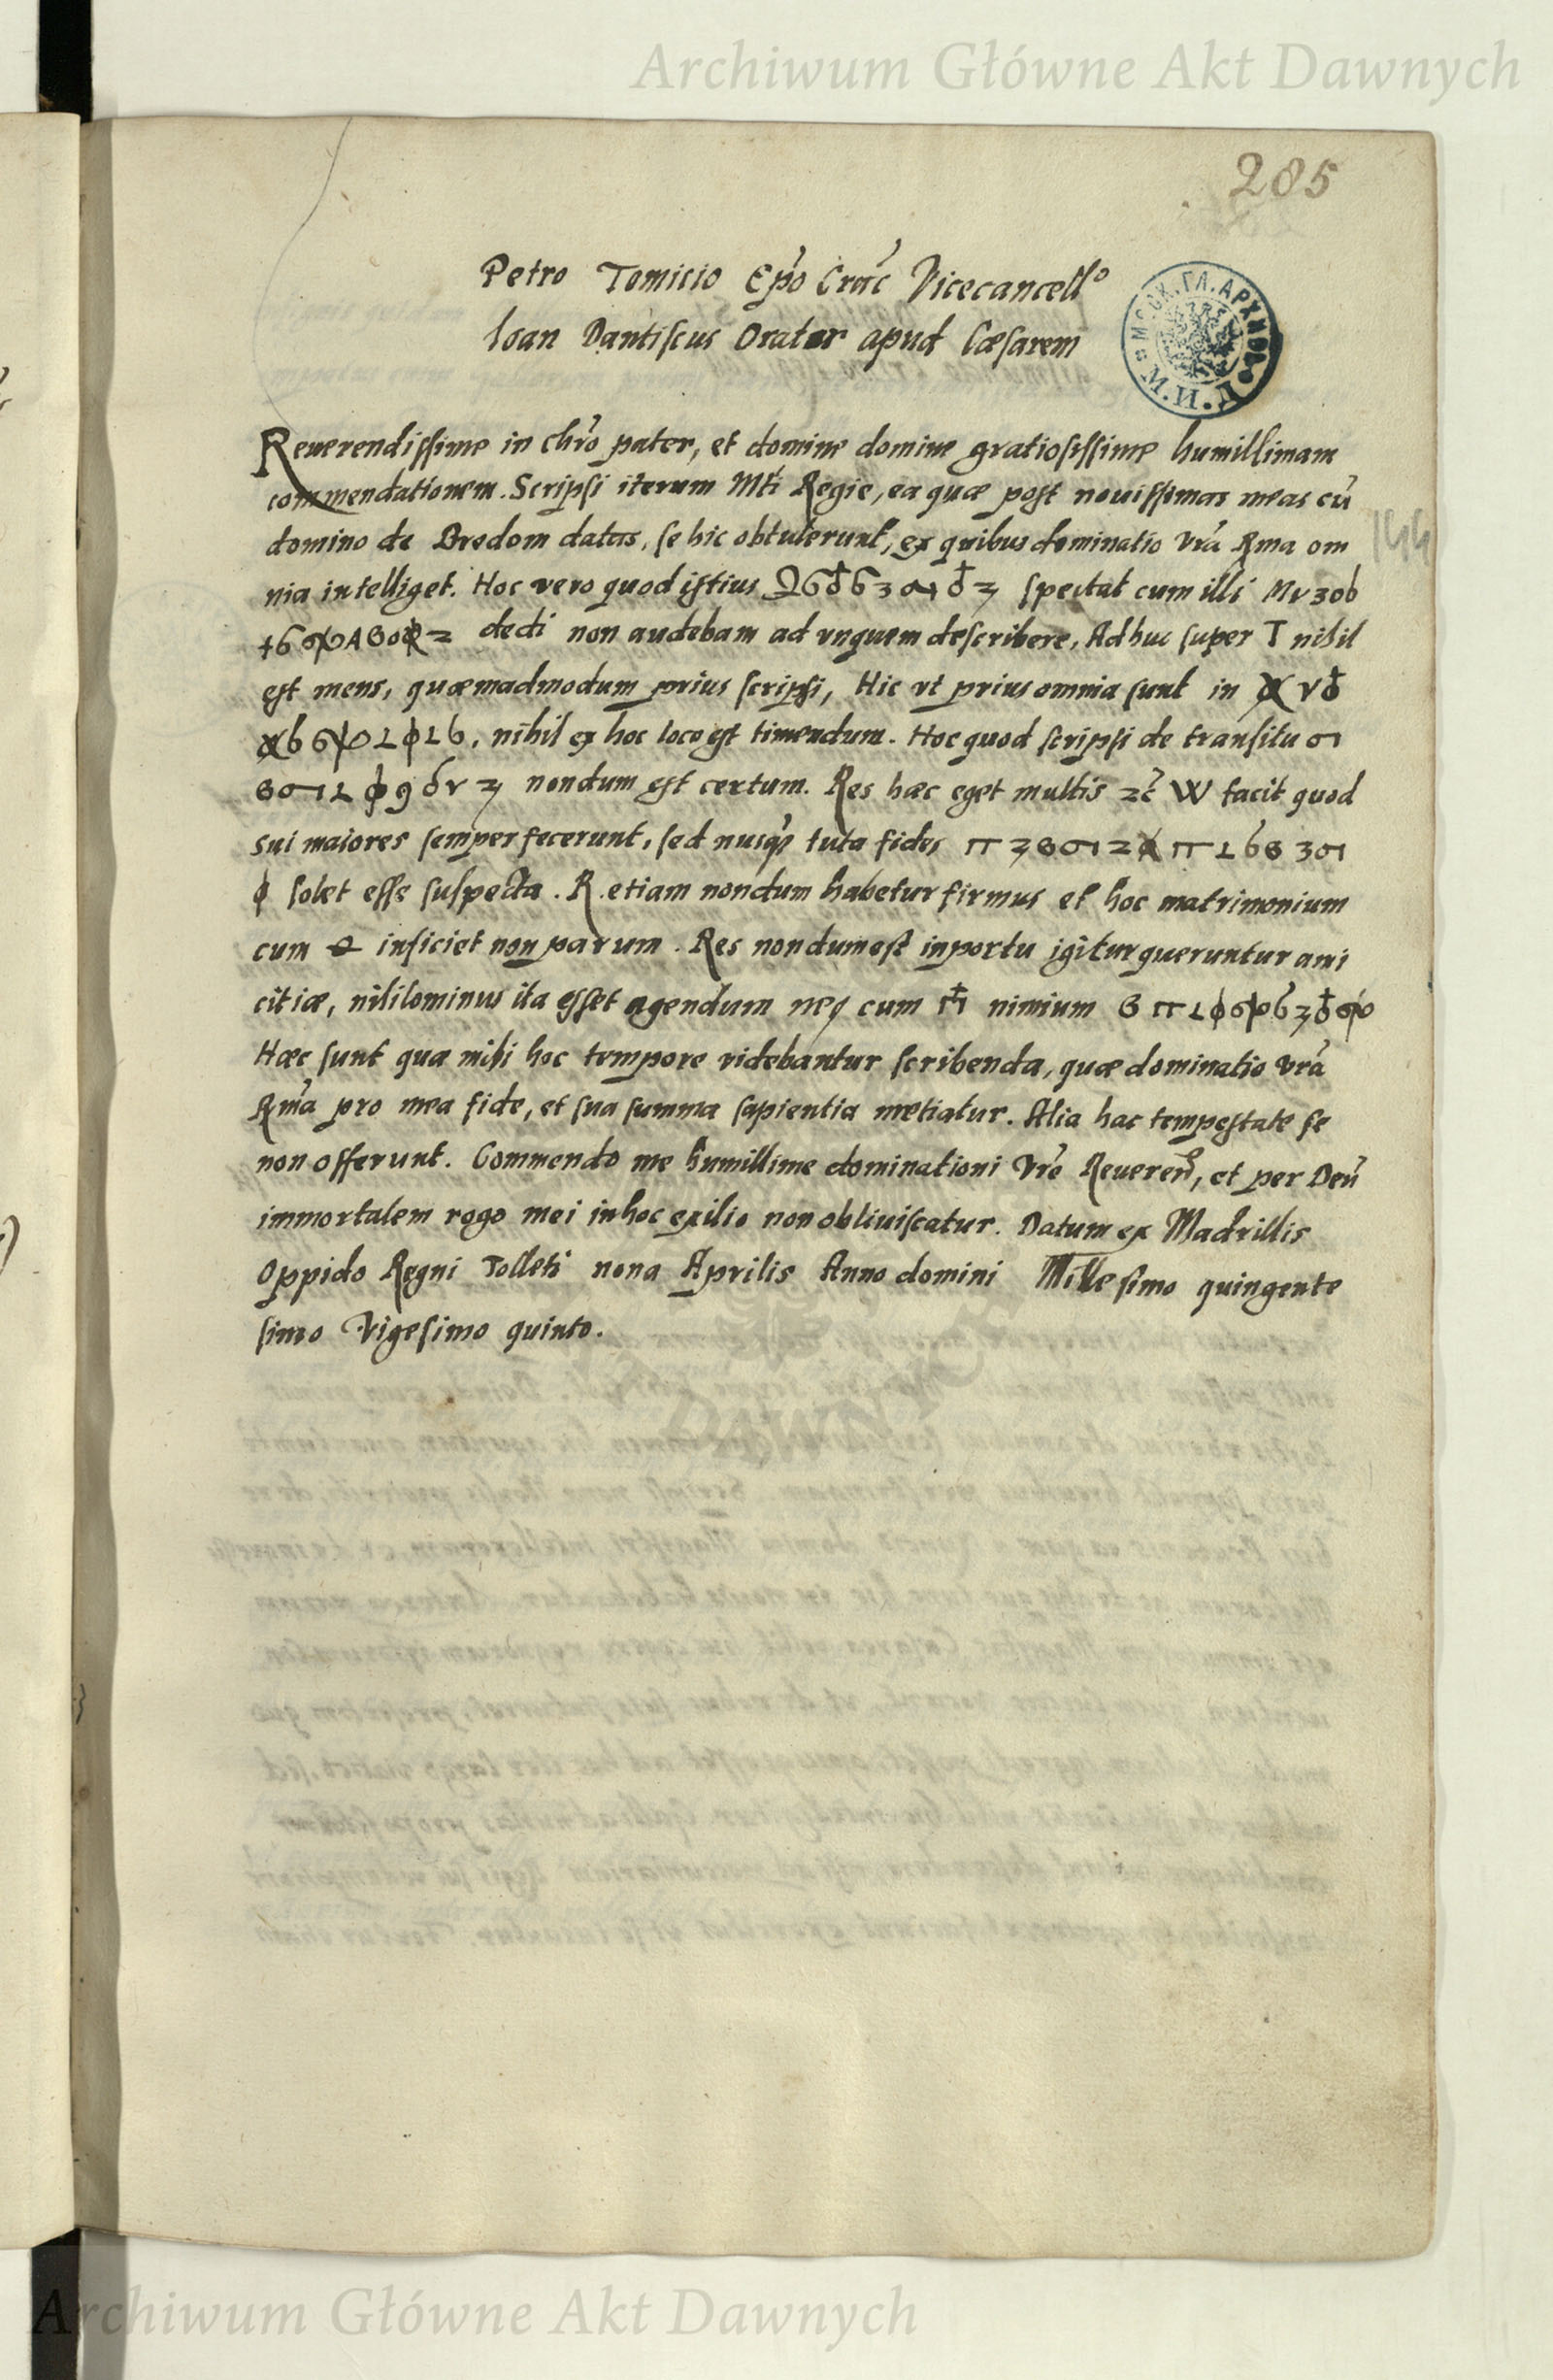 Archiwum Główne Akt Dawnych
285
Petro Tomicio Ep̃o Crac̃ Vicecancellº
Ioan Dantiſcus Orator apud Cæſarem
Reuerendiſſime in chr̃o pater, et domine domine gratioſiſſime humillimam
commendationem. Scripſi iterum Mti Regie, ea quæ poſt nouiſſimas meas cũ
domino de Bredom datas, ſe hic obtulerunt, ex quibus dominatio vrã Rma om
nia intelliget. Hoc vero quod iſtius ſpectat cum illi
dedi non audebam ad vnguem deſcribere, Adhuc ſuper T nihil
eſt mens, quæmadmodum prius ſcripſi, Hic vt prius omnia ſunt in
nihil ex hoc loco eſt timendum. Hoc quod ſcripſi de tranſitu
nondum eſt certum. Res hæc eget multis zc̃ W facit quod
sui maiores ſemper fecerunt, ſed nuſq̃ tuta fides
ſolet eſſe ſuſpecta. R. etiam nondum habetur firmus et hoc matrimonium
cum inficiet non parum. Res nondum eſt in portu igitur queruntur ami
citiæ, nihilominus ita eſſet agendum neq cum nimium
Hæc ſunt quæ mihi hoc tempore videbantur ſcribenda, quæ dominatio vrã
Rmã pro mea fide, et ſua ſumma ſapientia metiatur. Alia hac tempeſtate ſe
non offerunt. Commendo me humillime dominationi vrẽ Reueren, et per Deũ
immortalem rogo mei in hoc exilio non obliuiſcatur. Datum ex Madrillis
Oppido Regni Tolleti nona Aprilis Anno domini Milleſimo quingente
ſimo Vigeſimo quinto.
Archiwum Główne Akt Dawnych